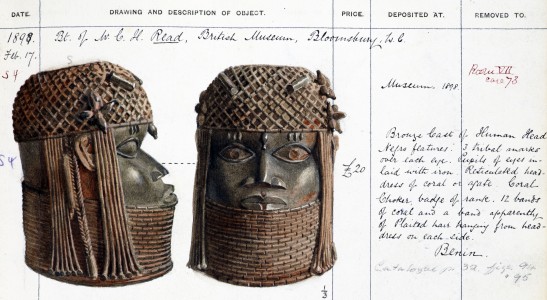 DATE.
DRAWING AND DESCRIPTION OF OBJECT.
PRICE.
DEPOSITED AT.
REMOVED TO.
1898.
Feb. 17.
Bt. of Mr. C. H. Read, British Museum, Bloomsbury, W. C.
S4
S4
£20
1/3
Museum. 1898
Room VII
case 78
Bronze Cast of Human Head
Negro features: 3 tribal marks
over each eye. Pupils of eyes in-
laid with iron. Reticulated head-
dress of coral or agate. Coral
Choker, badge of rank. 12 bands
of coral and a band apparently
of Plaited hair hanging from head-
dress on each side.
Benin.
Catalogue